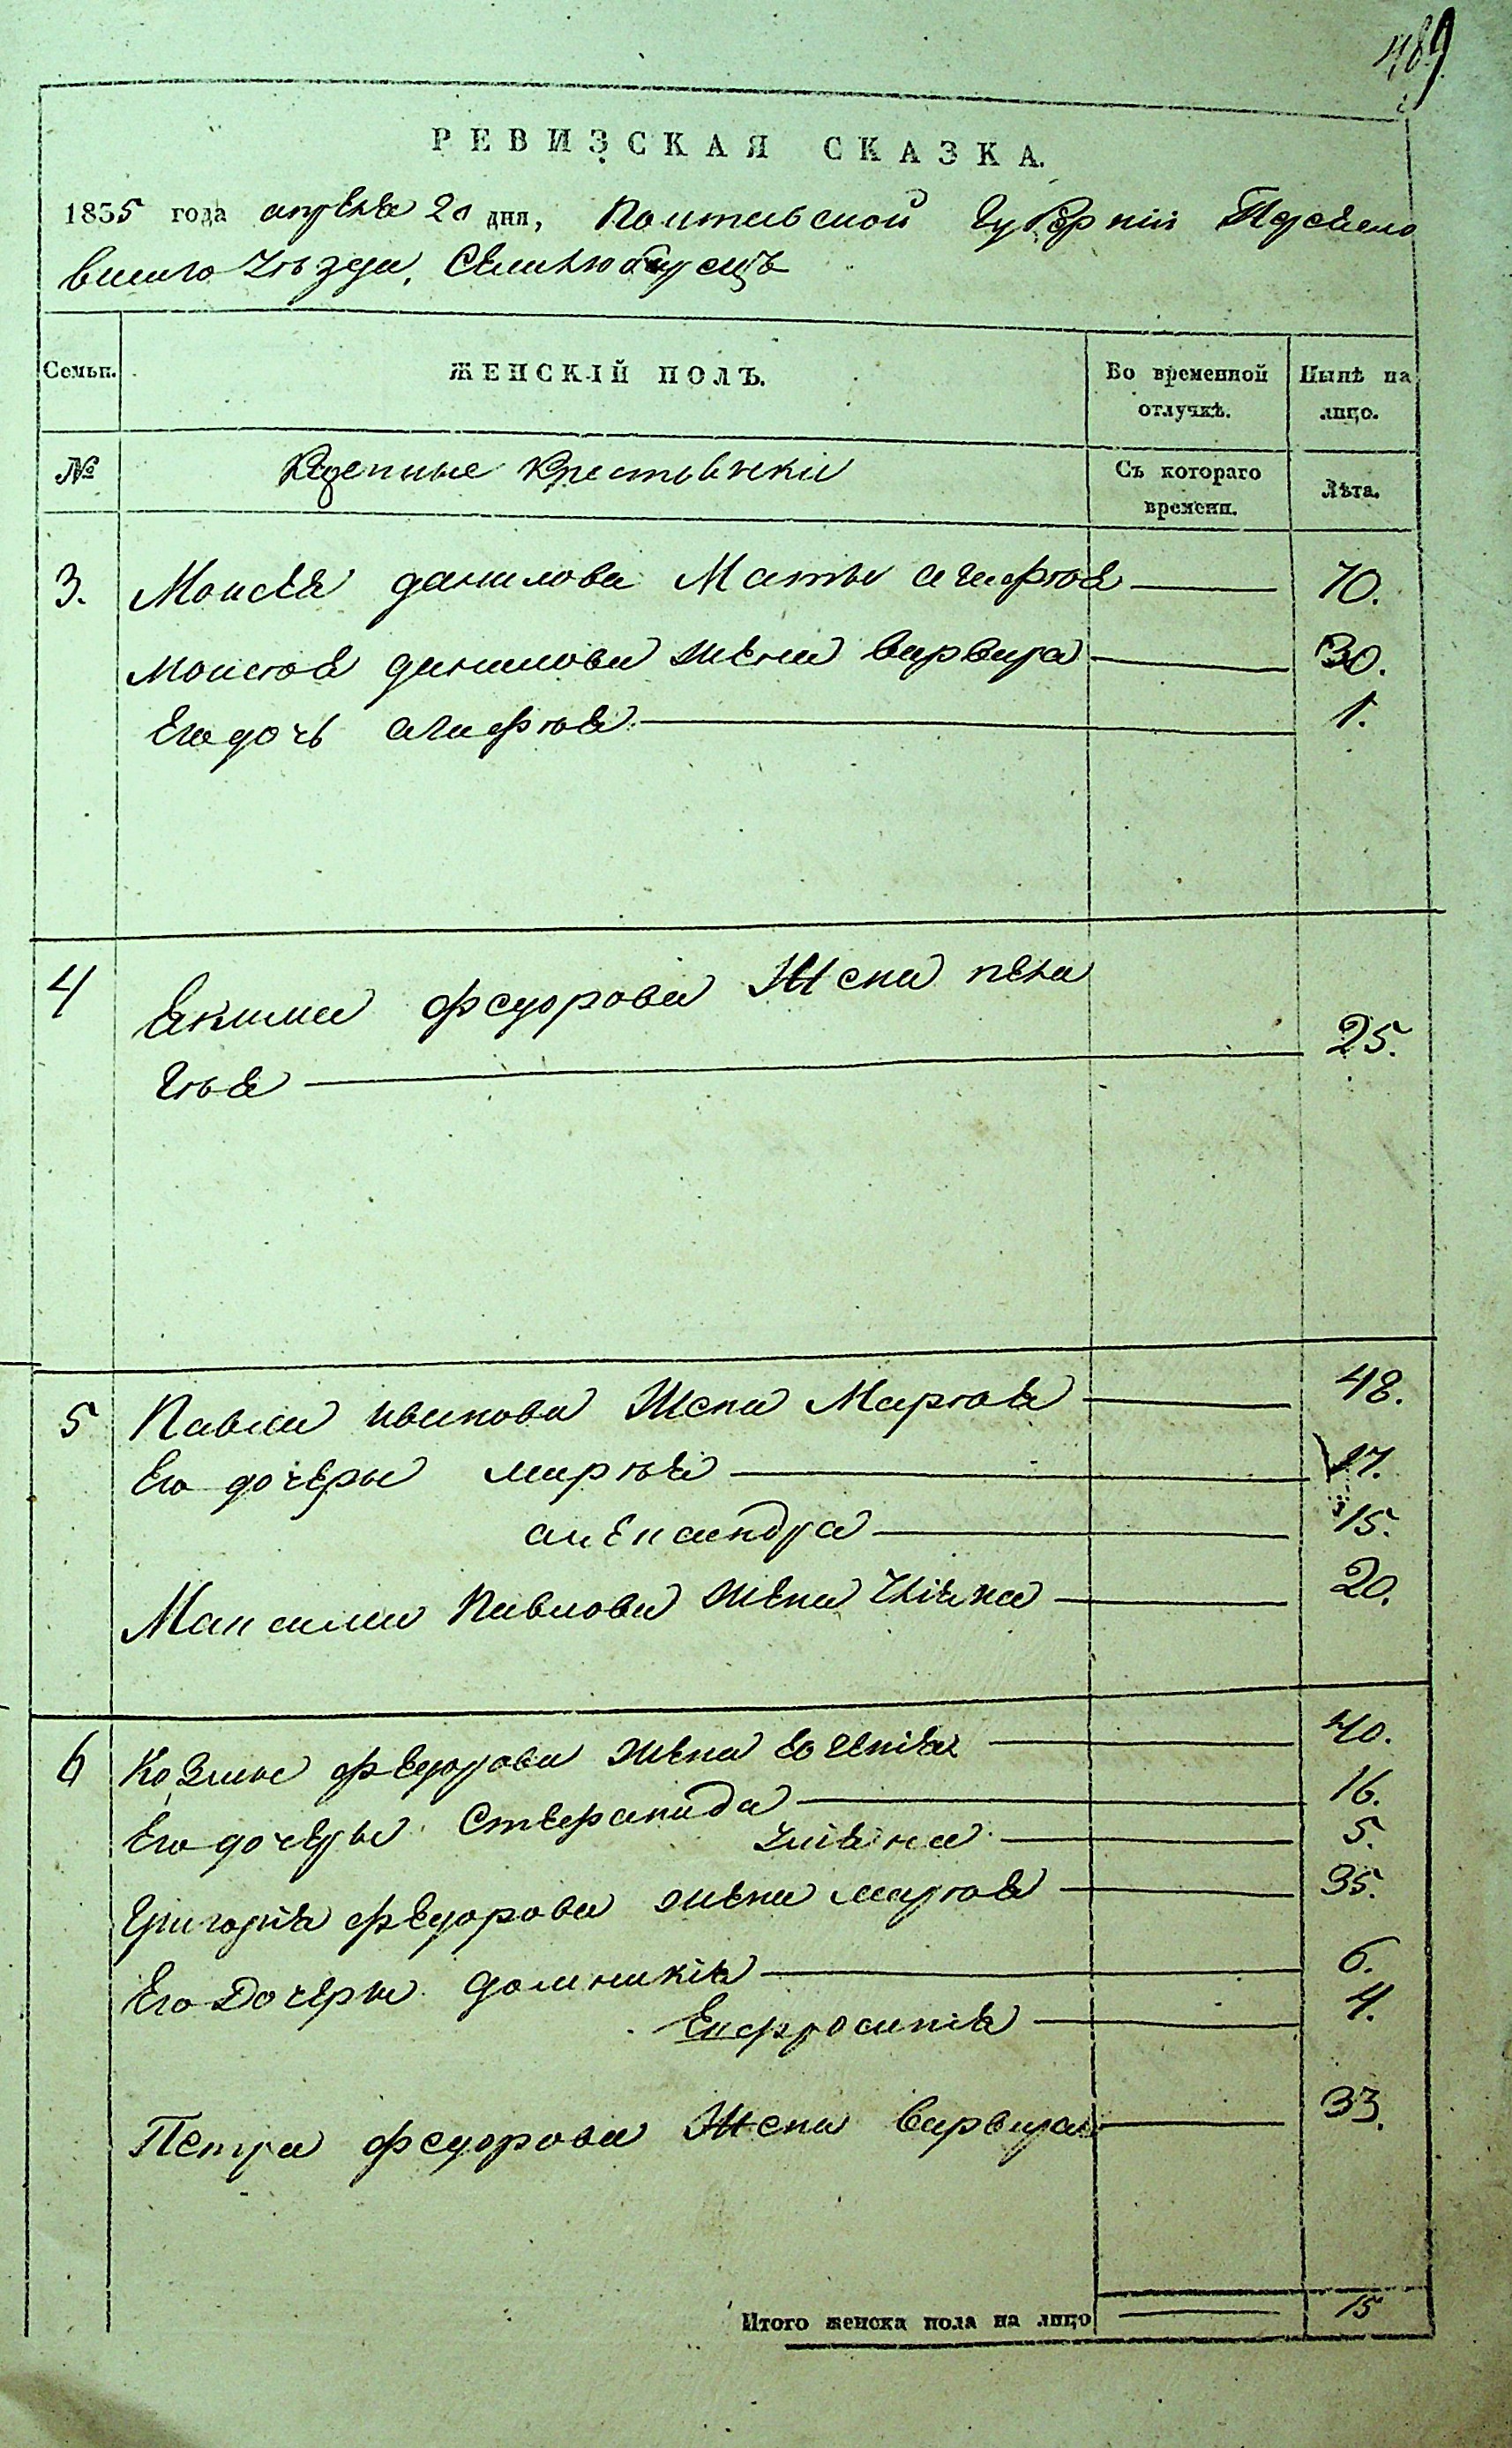 489
РЕВИЗСКАЯ СКАЗКА.
1835 года апреля 20 дня, Полтавской Губернии Переясло
вского уезда, Села
Семьи.
ЖЕНСКІЙ ПОЛЪ.
Во временной отлучкѣ.
Нынѣ на лицо.
№
крестьянки
Съ котораго времени.
Лѣта.
3. Моисея данилова Мать агафія 70.
моисея данилова жена варвара 30.
Его дочь агафія 1.
4 Екима федорова Жена пела
гія 25.
5 Павла иванова Жена Марія 48.
Его дочеры марія 17.
александра 15.
Максима Павлова жена Уліяна 20.
6 Козмы федорова жена евгенія 40.
Его дочеры Стефанида 16.
уліяна 5.
Григорія федорова жена марія 35.
Его Дочеры домникія 6.
Ефросинія 4.
Петра федорова Жена варвара 33.
Итого женска пола на лицо 15